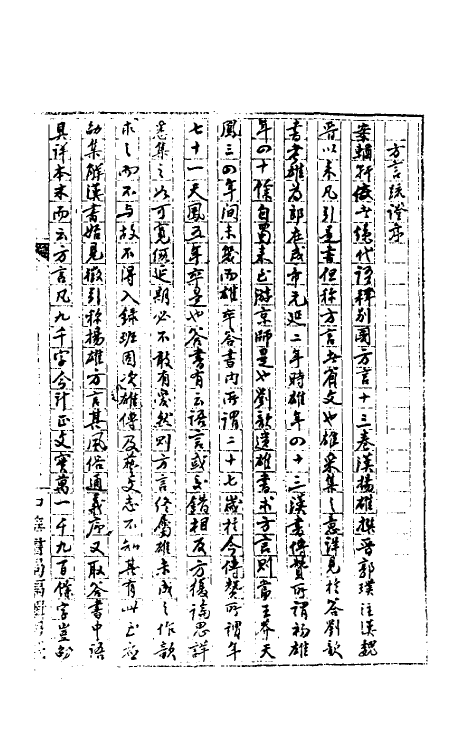 方言疏證序
案輶軒使者絕代語釋別國方言十三卷漢揚雄撰晉郭璞注漢魏
晉以來凡引是書但稱方言者省文也雄采集之意詳見於答劉歆
書考雄為郎在成帝元延二年時雄年四十三漢書傳贊所謂初雄
年四十餘自蜀來至游京師是也劉歆遺雄書求方言則當王莽天
鳳三四年間未幾而雄卒答書內所謂二十七歲於今傳贊所謂年
七十一天鳳五年卒是也答書有云語言或交錯相反方復論思詳
悉集之如可寬假延期必不敢有愛然則方言終屬雄未成之作歆
求之而不與故不得入錄班固次雄傳及藝文志不知其有此至應
劭集解漢書始見徵引稱揚雄方言其風俗通義序又取答書中語
具詳本末而云方言凡九千字今計正文實萬一千九百餘字豈劭